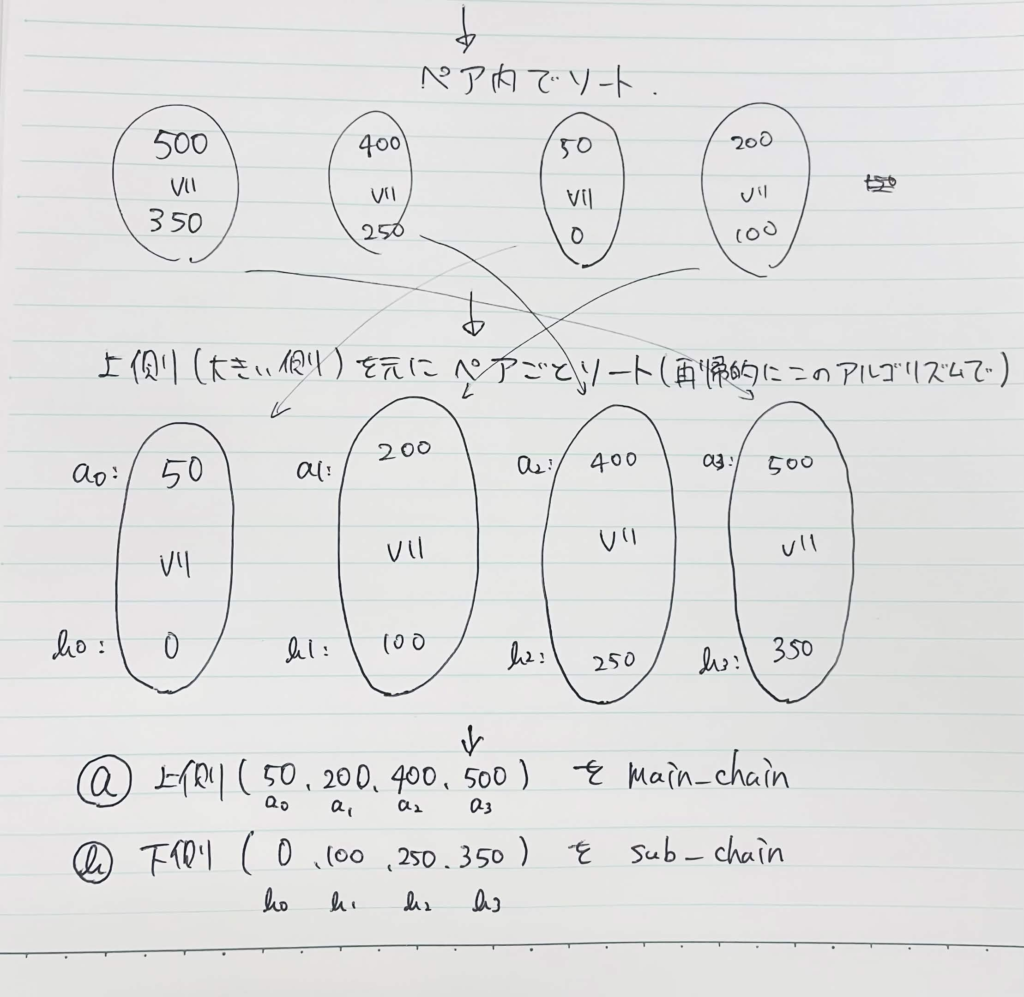 ↓
ペア内でソート.
500 400 50 200
VII VII VII VII
350 250 0 100
↓
上側(大きい側)を元にペアごとソート(再帰的にこのアルゴリズムで)
a0: 50 a1: 200 a2: 400 a3: 500
VII VII VII VII
b0: 0 b1: 100 b2: 250 b3: 350
↓
ⓐ 上側(50、200、400、500) を main_chain
a0 a1 a2 a3
ⓑ 下側(0、100、250、350) を sub_chain
b0 b1 b2 b3